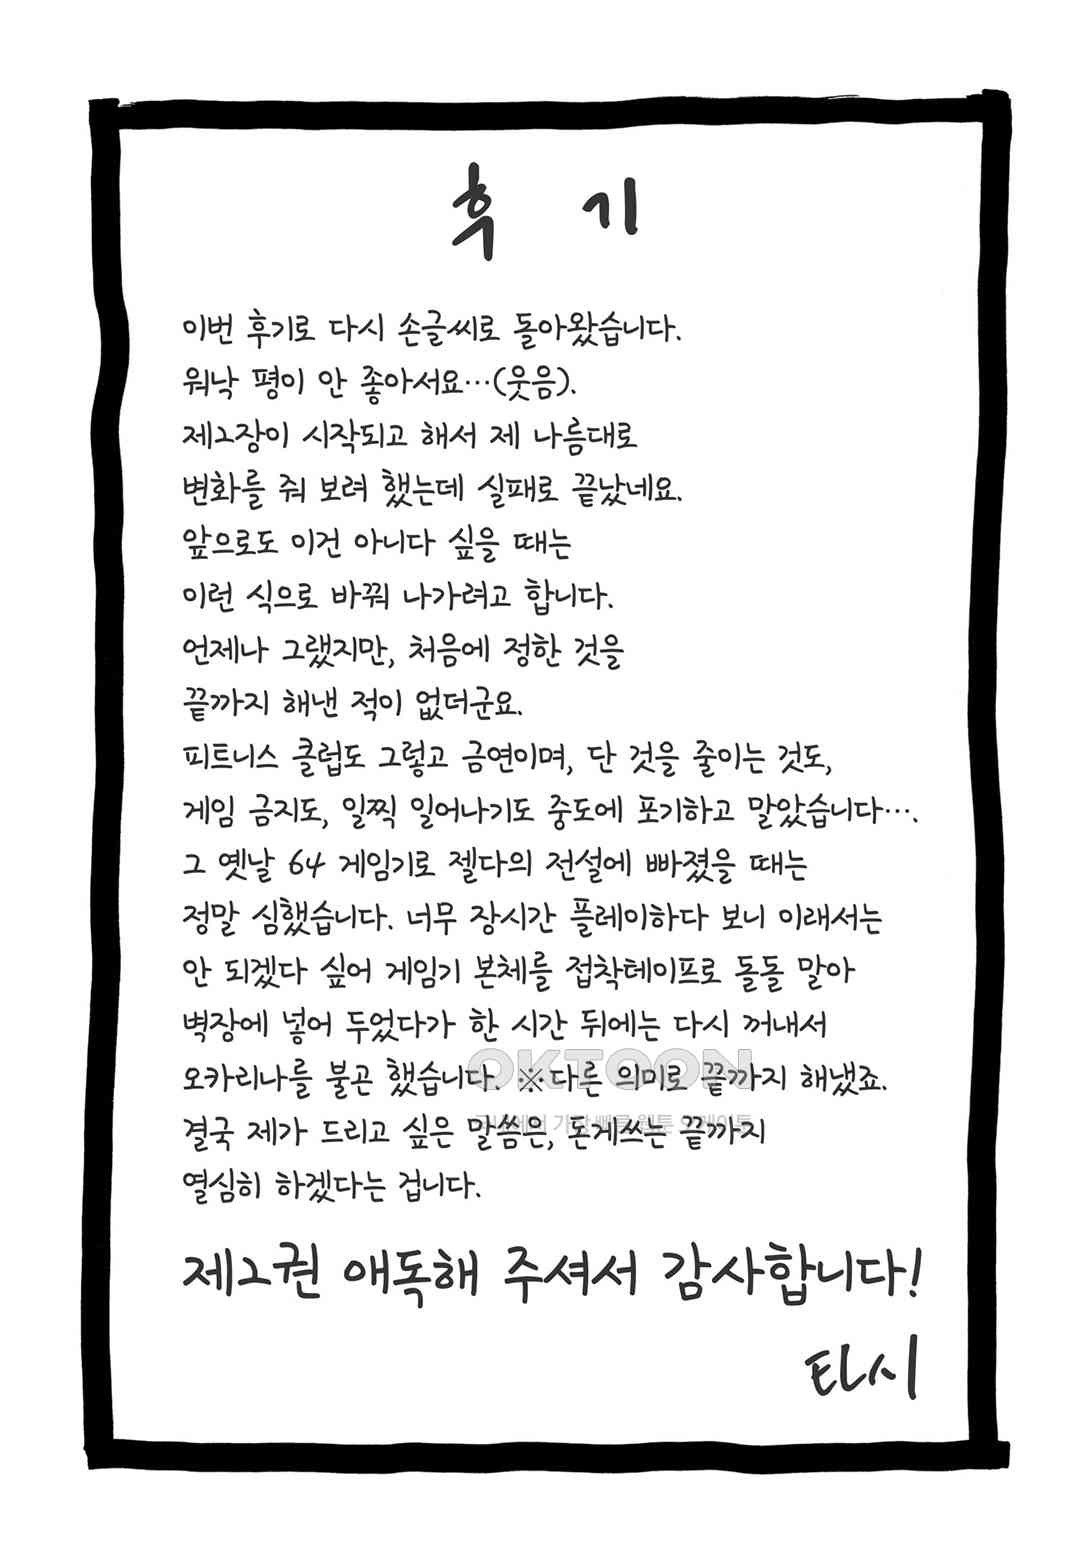 후 기
이번 후기로 다시 손글씨로 돌아왔습니다.
워낙 평이 안 좋아서요…(웃음).
제2장이 시작되고 해서 제 나름대로
변화를 줘 보려 했는데 실패로 끝났네요.
앞으로도 이건 아니다 싶을 때는
이런 식으로 바꿔 나가려고 합니다.
언제나 그랬지만, 처음에 정한 것을
끝까지 해낸 적이 없더군요.
피트니스 클럽도 그렇고 금연이며, 단 것을 줄이는 것도,
게임 금지도, 일찍 일어나기도 중도에 포기하고 말았습니다….
그 옛날 64 게임기로 젤다의 전설에 빠졌을 때는
정말 심했습니다. 너무 장시간 플레이하다 보니 이래서는
안 되겠다 싶어 게임기 본체를 접착테이프로 돌돌 말아
벽장에 넣어 두었다가 한 시간 뒤에는 다시 꺼내서
오카리나를 불곤 했습니다. ※다른 의미로 끝까지 해냈죠.
OKTOON
결국 제가 드리고 싶은 말씀은, 돈게쓰는 끝까지
열심히 하겠다는 겁니다.
제2권 애독해 주셔서 감사합니다!
타시